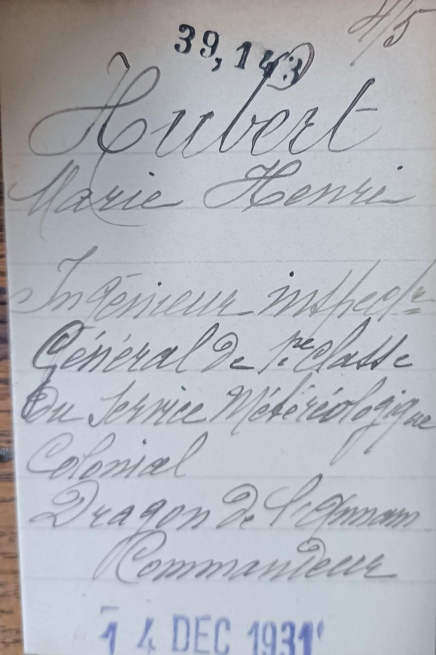 4/5
39,143
Hubert
Marie Henri
Ingénieur inspectr
Général de 1re classe
du Service Météréologique
Colonial
Dragon de l'Annam
Commandeur
14 DEC 1931